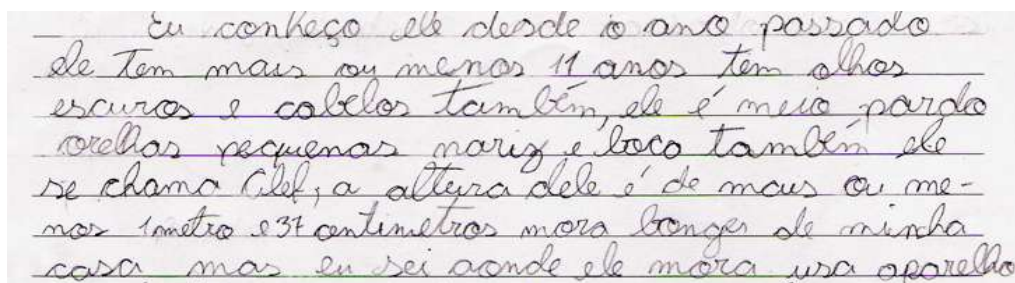 Eu conheço ele desde o ano passado
ele tem mais ou menos 11 anos tem olhos
escuros e cabelos também, ele é meio pardo
orelhas pequenas nariz e boca também ele
se chama Clef, a altura dele é de mais ou me-
nos 1 metro e 37 centimetros mora longer de minha
casa mas eu sei aonde ele mora usa aparelho